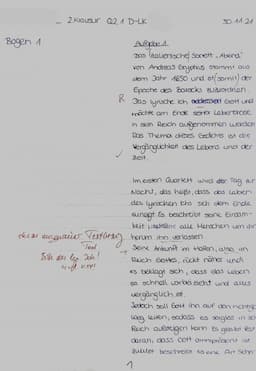 2. Klausur Q2.1 D-LK 30.11.21
Bogen 1
Aufgabe 1
Das (italienische) Sonett „Abend"
von Andreas Gryphius stammt aus
dem Jahr 1650 und ist (somit) der
Epoche des Barocks zuzuordnen.
R Das lyrische Ich Gott und
möchte am Ende seiner Lebenszeit
in sein Reich aufgenommen werden.
Das Thema dieses Gedichts ist die
Vergänglichkeit des Lebens und der
Zeit.
Im ersten Quartett wird der Tag zur
Nacht, das heißt, dass das Leben
des lyrischen Ichs sich dem Ende
Es beschreibt seine Einsam-
keit alle Menschen um ihn
herum ihn verlassen.
Seine Ankunft im Hafen, also, an
Reich Gottes, rückt näher und
es beklagt sich, dass das Leben
so schnell vorbei zieht und alles
vergänglich ist.
Jedoch soll Gott ihn auf den richtige
Weg leiten, sodass es sorglos in sein
Reich aufsteigen kann. Es glaubt fest
daran, dass Gott omnipräsent ist.
Zuletzt beschreibt es eine Art Sehn-
Text
1